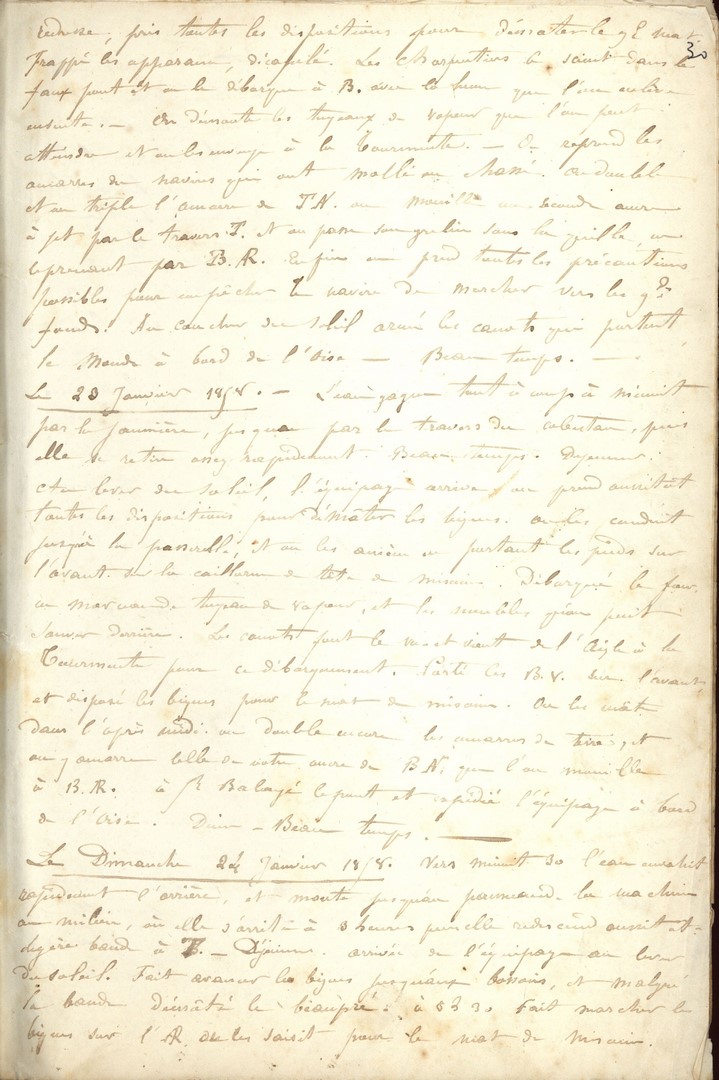 30
pris toutes les dispositions pour démâter le gd mat
Frappé les apparaux, décapelé. Les charpentiers le scient dans le
faux pont et on le débarque à B. avec la hune que l'on enlève
ensuite. — On démonte les tuyaux de vapeur que l'on peut
atteindre et on les envoye à la Tourmente. — On reprend les
amarres du navire qui ont molli ou chassé. on double
et on triple l'amarre de T.N. on mouille une seconde ancre
à jet par le travers T. et on passe son grelin sous la quille, en
le prenant par B.R. Enfin on prend toutes les précautions
possibles pour empêcher le navire de marcher vers les gds
fonds. Au coucher du soleil armé les canots qui portent
le monde à bord de l'Oise — Beau temps. —
Le 23 Janvier 1858. — L'eau gagne tout à coup à minuit
par la jaumière, jusque par le travers du cabestan, puis
elle se retire assez rapidement. Beau temps. Déjeuner.
Au lever du soleil, l'équipage arrive on prend aussitôt
toutes les dispositions pour démâter les bigues. on les conduit
jusqu'à la passerelle, et on les amène en portant les pieds sur
l'avant de la de tête de misaine. Débarqué le four,
un tuyau de vapeur, et les meubles qu'on peut
sauver derrière. Les canots font le va et vient de l'Aigle à la
Tourmente pour ce débarquement. Porté les sur l'avant
et disposé les bigues pour le mat de misaine. On les mâte
dans l'après midi. on double encore les amarres de terre, et
on y amarre celle de notre ancre de B.N. que l'on mouille
à B.R. à 5h Balayé le pont et expédié l'équipage à bord
de l'Oise. Diner — Beau temps. —
Le Dimanche 24 Janvier 1858. Vers minuit 30 l'eau envahit
rapidement l'arrière, et monte jusqu'au panneau de la machine
au milieu, où elle s'arrête à 3 heures puis elle redescend aussitôt
légère bande à T. — Déjeuner. arrivée de l'équipage au lever
du soleil. Fait avancer les bigues jusqu'aux bossoirs, et malgré
la bande démâté le beaupré. à 8h30 Fait marcher les
bigues sur l'AR on les saisit pour le mat de misaine.